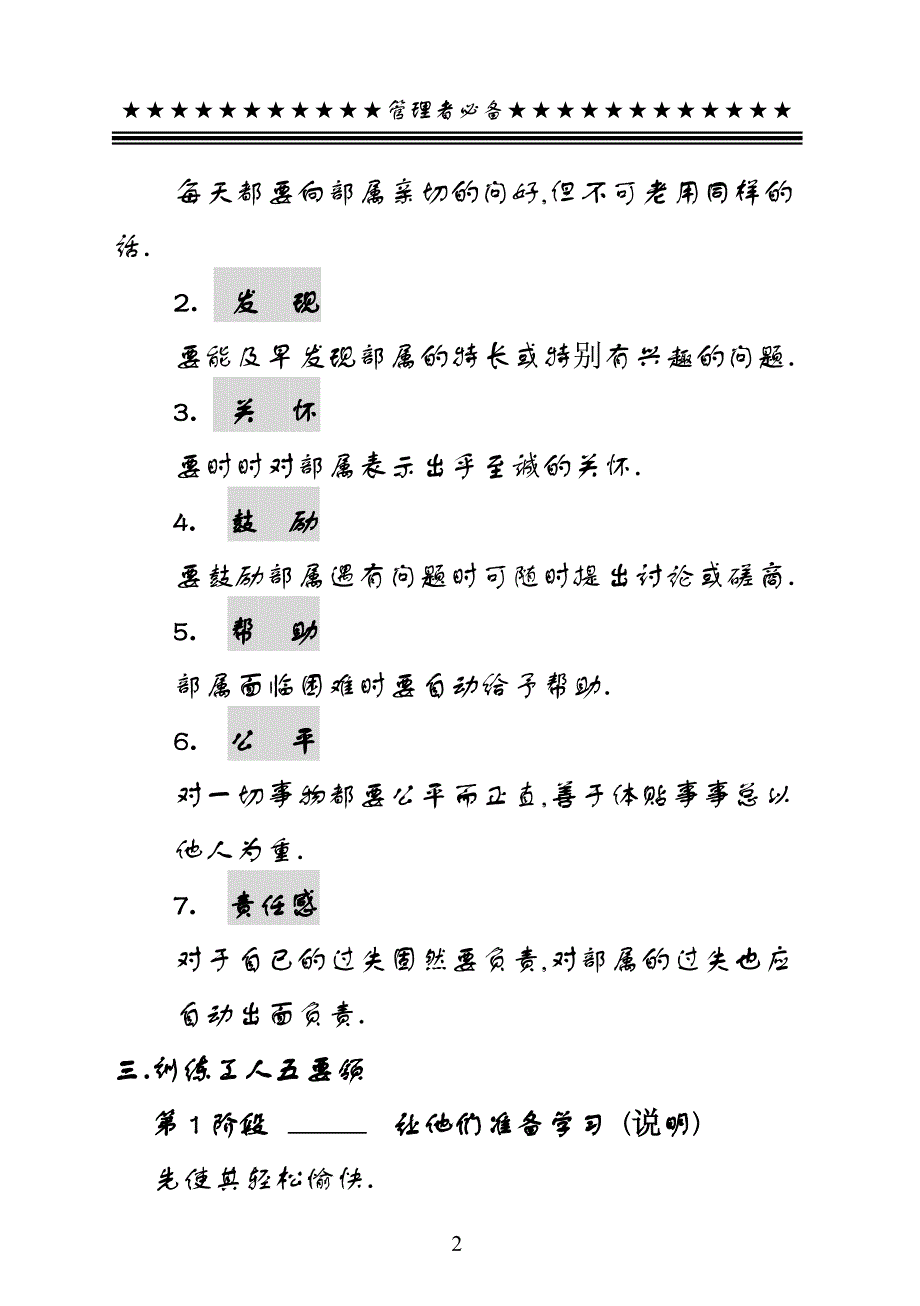 ★★★★★★★★★★★管理者必备★★★★★★★★★★★★
每天都要向部属亲切的问好,但不可老用同样的
话.
2. 发 现
要能及早发现部属的特长或特别有兴趣的问题.
3. 关 怀
要时时对部属表示出乎至诚的关怀.
4. 鼓 励
要鼓励部属遇有问题时可随时提出讨论或磋商.
5. 帮 助
部属面临困难时要自动给予帮助.
6. 公 平
对一切事物都要公平而正直,善于体贴事事总以
他人为重.
7. 责任感
对于自已的过失固然要负责,对部属的过失也应
自动出面负责.
三.训练工人五要领
第1阶段 _____ 让他们准备学习 (说明)
先使其轻松愉快.
2